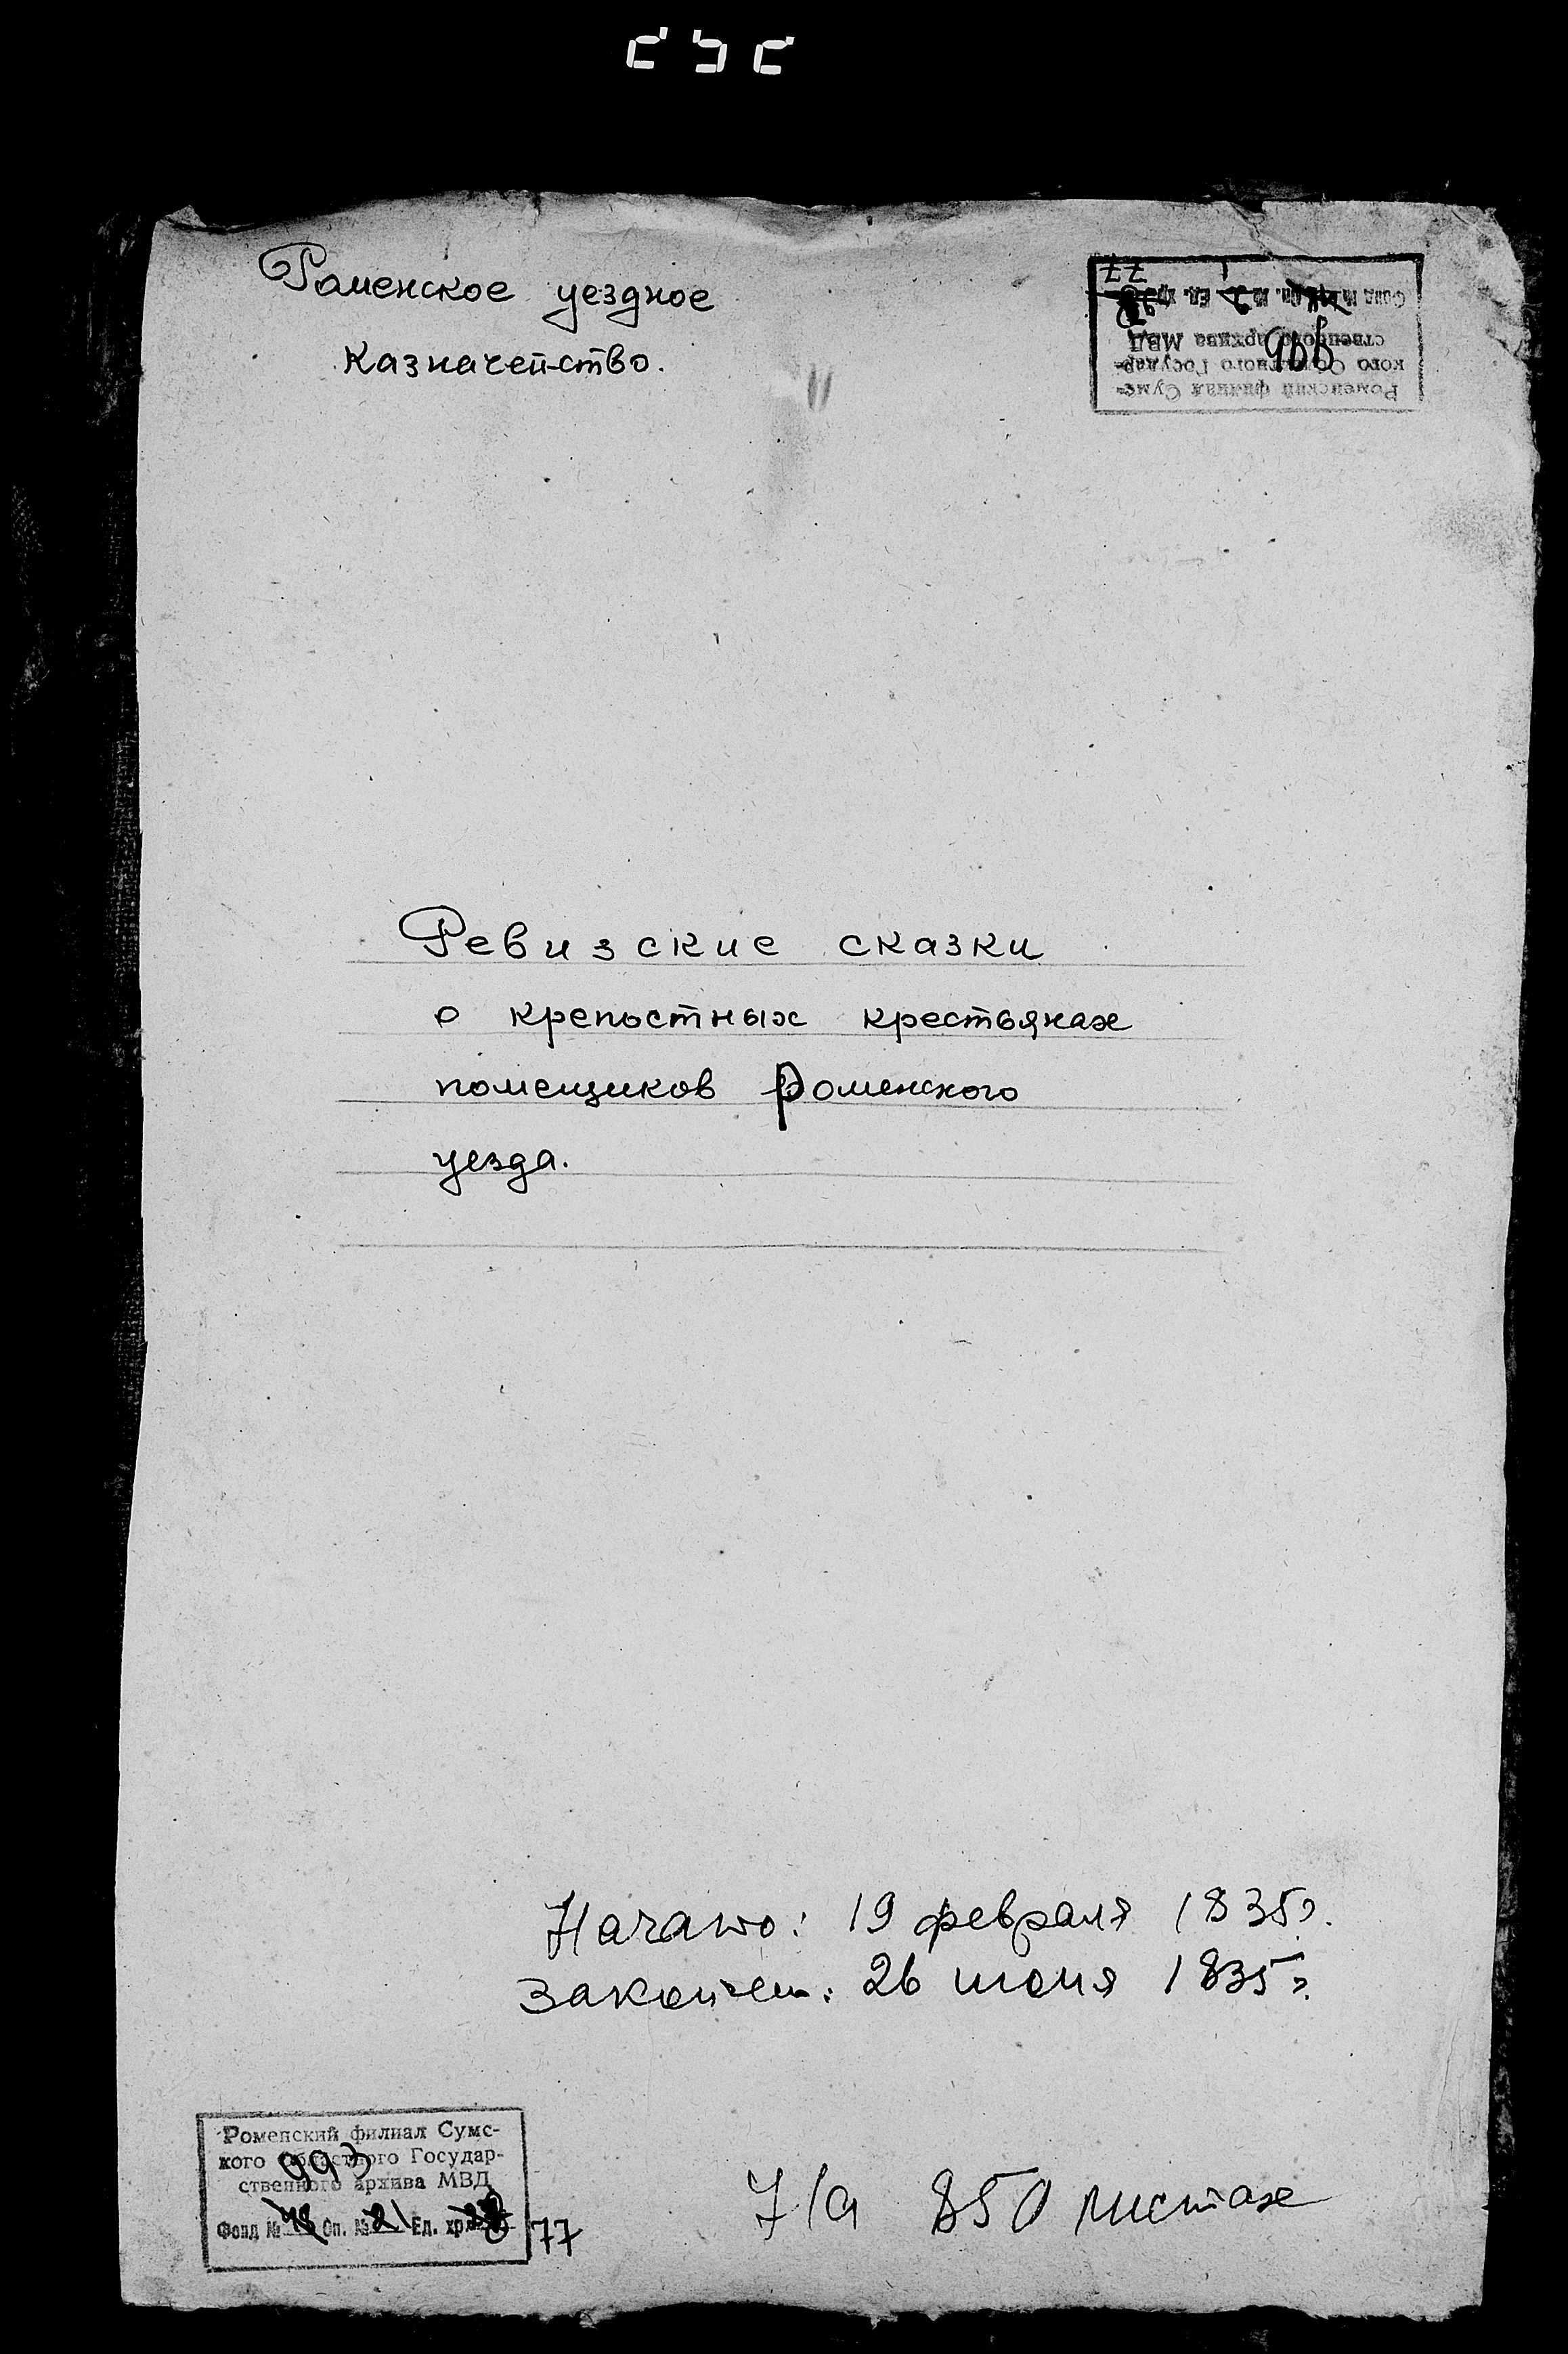 Роменское уездное
казначейство.
Роменский филиал Сумс-
кого Областного Государ-
ственного архива МВД
Фонд № Оп. № Ед. хр.
77
Ревизские сказки
о крепостных крестьянах
помещиков Роменского
уезда.
Начало: 19 февраля 1835г.
Закончен: 26 июня 1835г.
Роменский филиал Сумс-
кого Областного Государ-
ственного архива МВД
993
Фонд № Оп. № Ед. хр. 77
На 850 листах